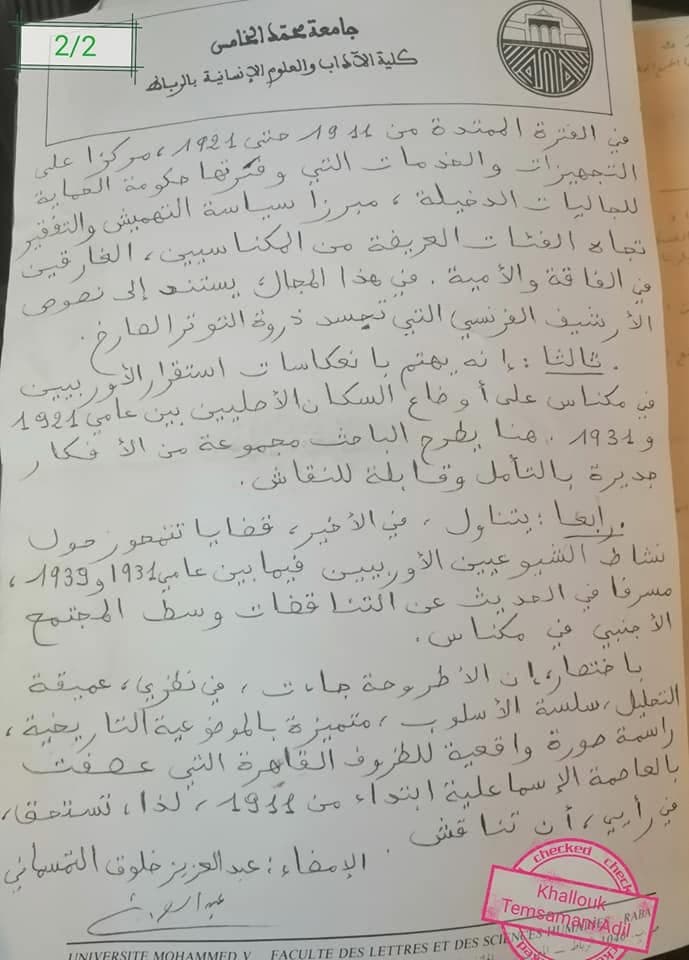 2/2
جامعة محمد الخامس
كلية الآداب والعلوم الإنسانية بالرباط
في الفترة الممتدة من 1911 حتى 1921، مركزا على
التجهيزات والخدمات التي وفرتها حكومة الحماية
للجاليات الدخيلة، مبرزا سياسة التهميش والتفقير
تجاه الفئات العريضة من المكناسيين، الغارقين
في الفاقة والأمية. في هذا المجال يستند إلى نصوص
الأرشيف الفرنسي التي تجسد ذروة التوتر الصارخ.
. ثالثا: إنه يهتم بانعكاسات استقرار الأوربيين
في مكناس على أوضاع السكان الأصليين بين عامي 1921
و 1931. هنا يطرح الباحث مجموعة من الأفكار
جديرة بالتأمل وقابلة للنقاش.
. رابعا: يتناول، في الأخير، قضايا تتمحور حول
نشاط الشيوعيين الأوربيين فيما بين عامي 1931 و 1939،
مسرفا في الحديث عن التناقضات وسط المجتمع
الأجنبي في مكناس.
باختصار، إن الأطروحة جاءت، في نظري، عميقة
التحليل، سلسة الأسلوب، متميزة بالموضوعية التاريخية،
راسمة صورة واقعية للظروف القاهرة التي عصفت
بالعاصمة الإسماعلية ابتداء من 1911، لذا، تستحق،
في رأيي، أن تناقش.
الإمضاء: عبد العزيز خلوق التمسماني
checked check
Khallouk
Temsamani Adil
UNIVERSITE MOHAMMED V FACULTE DES LETTRES ET DES SCIENCES HUMAINES RABA